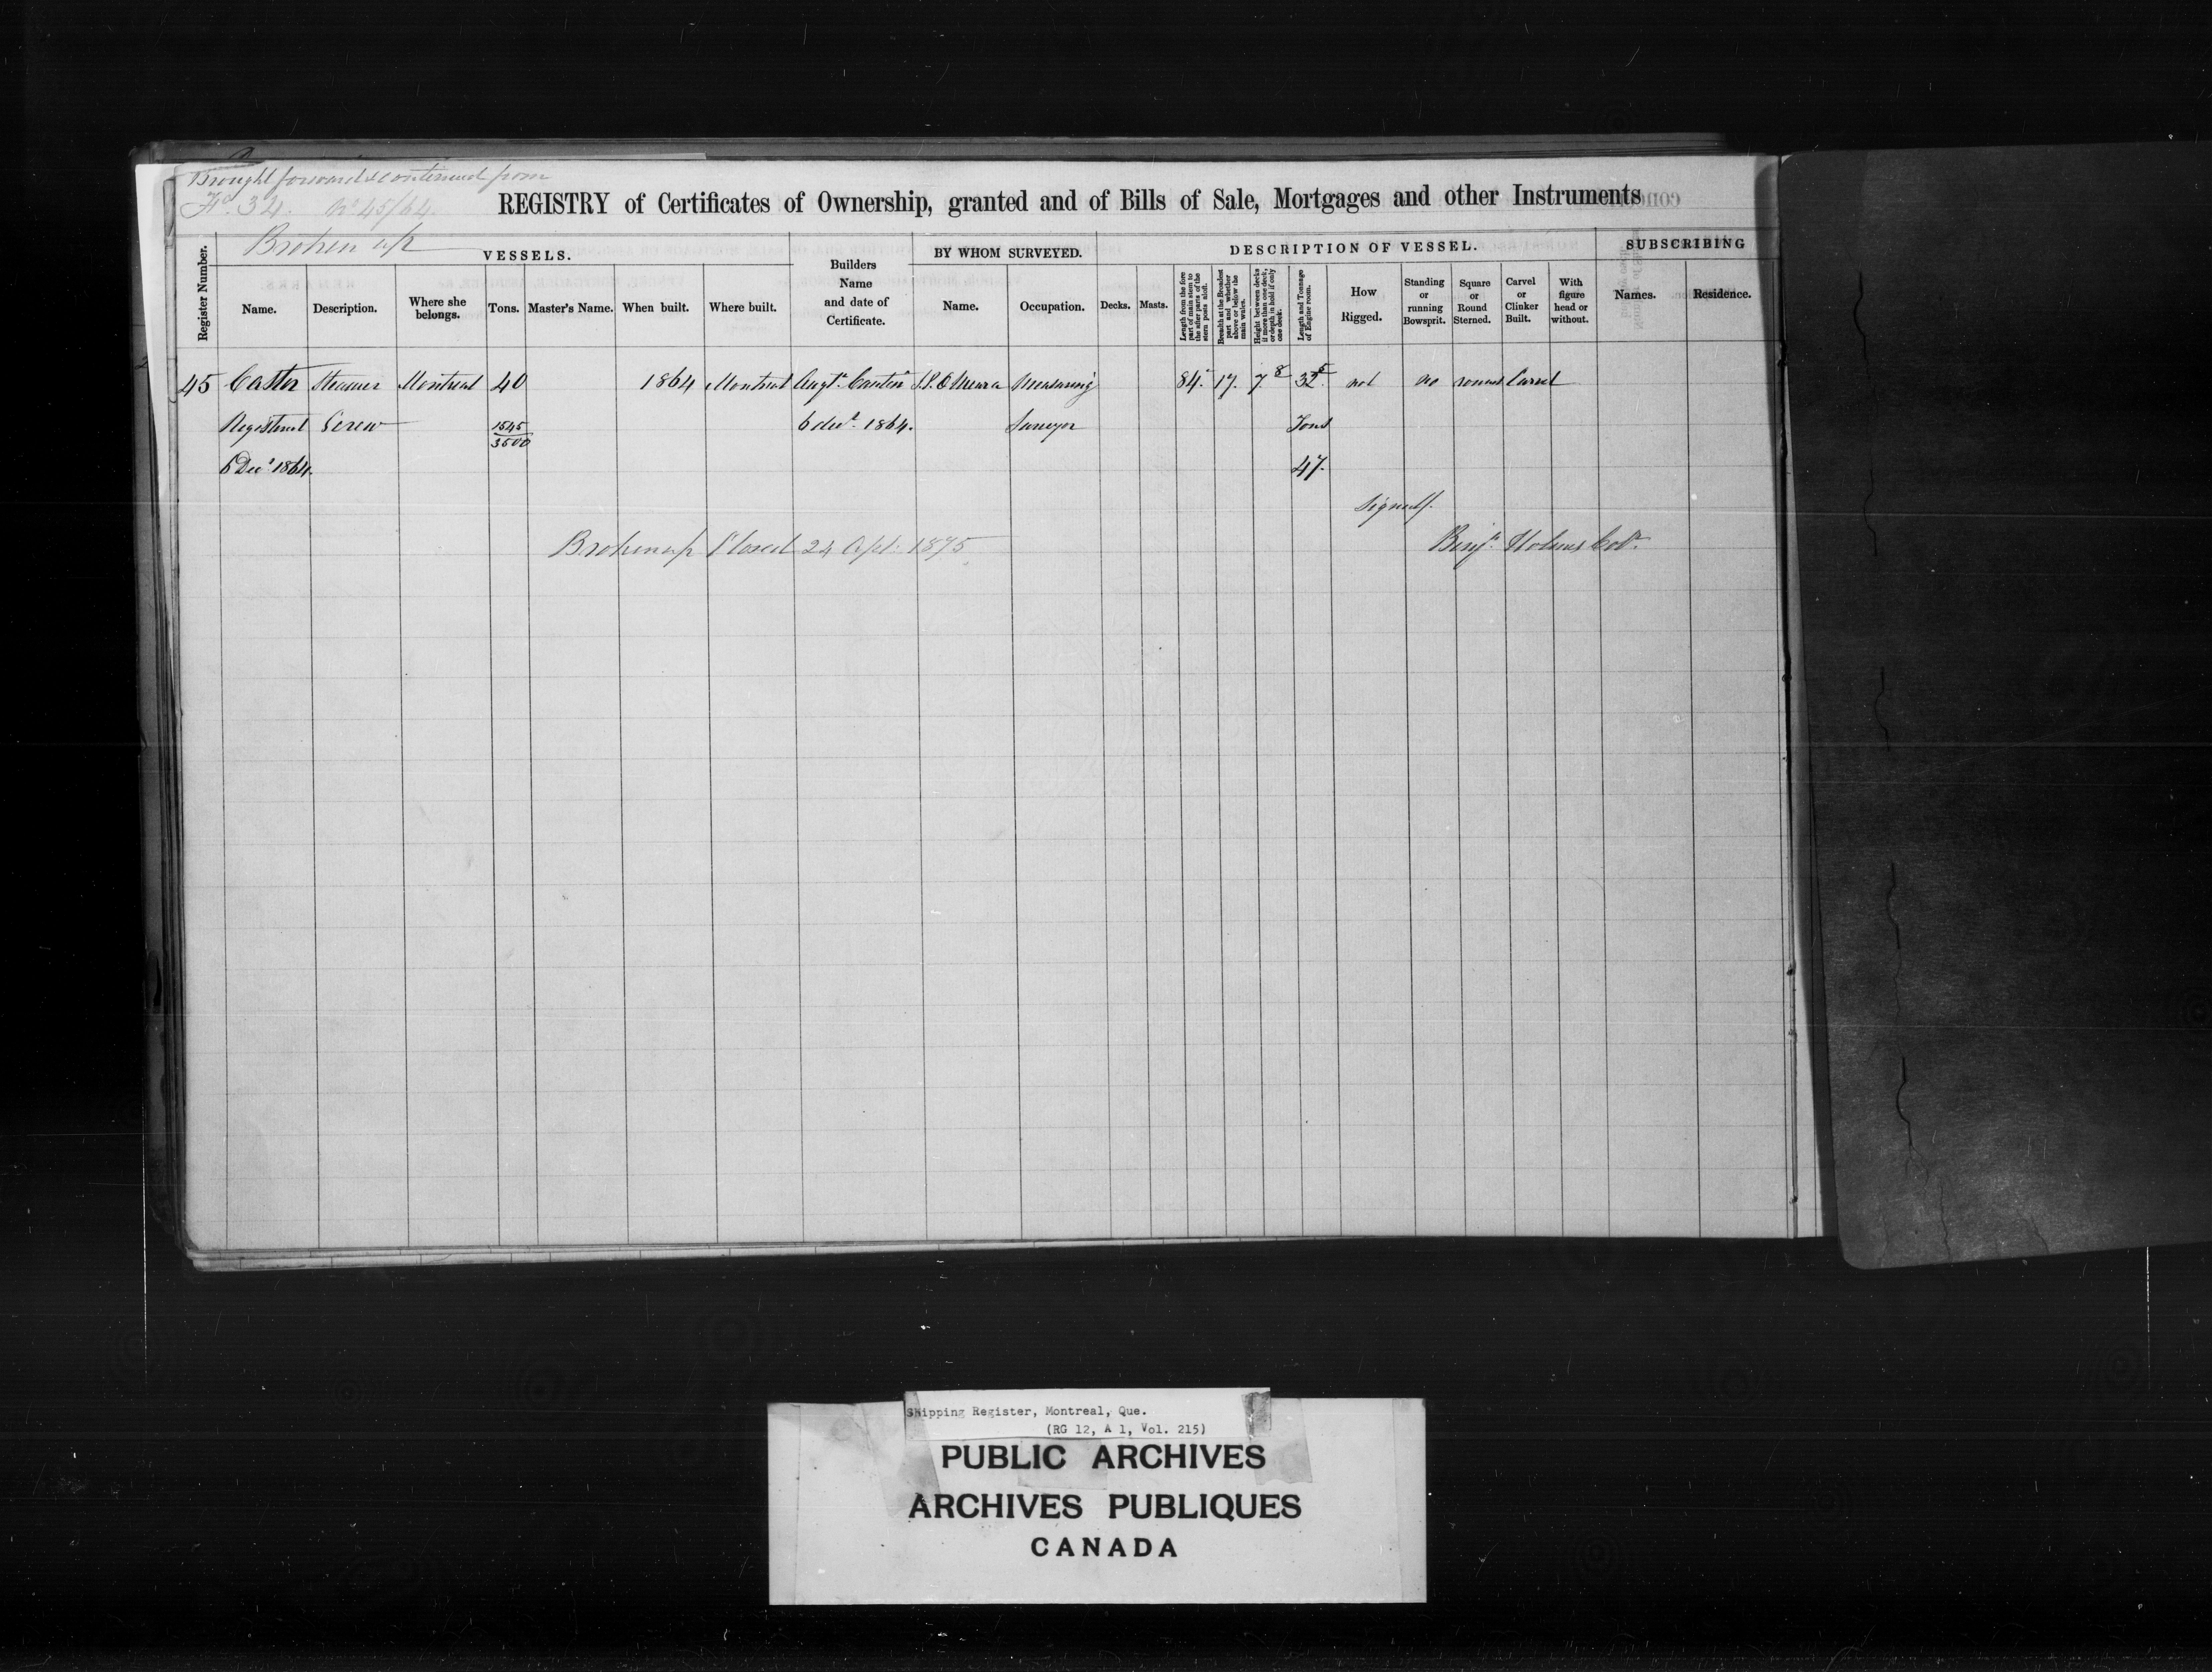 Brought forward & continued from
Fo. 34. No 45/64.
Broken up
REGISTRY of Certificates of Ownership, granted and of Bills of Sale, Mortgages and other Instruments
Register Number.
VESSELS.
Name.
Description.
Where she belongs.
Tons.
Master's Name.
When built.
Where built.
Builders Name and date of Certificate.
BY WHOM SURVEYED.
Name.
Occupation.
DESCRIPTION OF VESSEL.
Decks.
Masts.
Length from the fore part of main stem to the after parts of the stern posts aloft.
Breadth at the Broadest part and whether above or below the main wales.
Height between decks if more than one deck, or depth in hold if only one deck.
Length and Tonnage of Engine room.
How Rigged.
Standing or running Bowsprit.
Square or Round Sterned.
Carvel or Clinker Built.
With figure head or without.
SUBSCRIBING
Names.
Residence.
45 Castor Steamer Montreal 40 1864 Montreal Augt. Cantin Measuring 84. 17. 7.8 32.5 not no round Carvel
Registered Screw 1545/3500 6 decr. 1864. Surveyor Tons
6 Decr 1864. 47.
Signed/.
Broken up Closed 24 Apl. 1875
Benjn. Holmes Colr.
Shipping Register, Montreal, Que.
(RG 12, A 1, Vol. 215)
PUBLIC ARCHIVES
ARCHIVES PUBLIQUES
CANADA